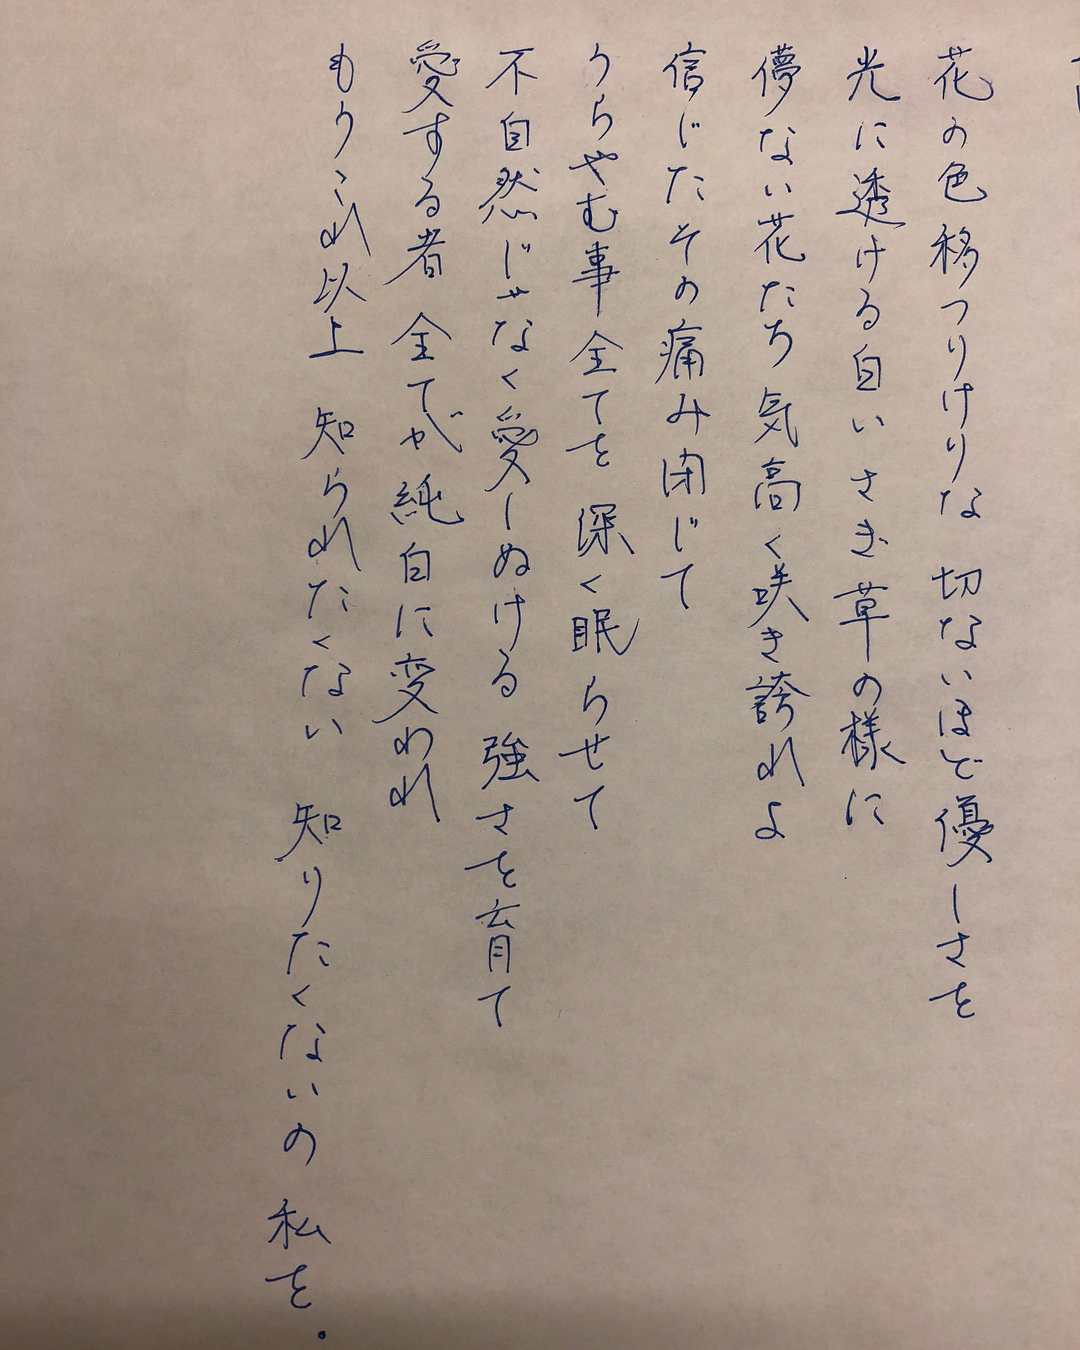 花の色移つりけりな 切ないほど優しさを
光に透ける白いさぎ草の様に
儚ない花たち気高く咲き誇れよ
信じたその痛み閉じて
うらやむ事全てを 深く眠らせて
不自然じゃなく愛しぬける 強さを育て
愛する者 全てが純白に変われ
もうこれ以上 知られたくない 知りたくないの 私を.